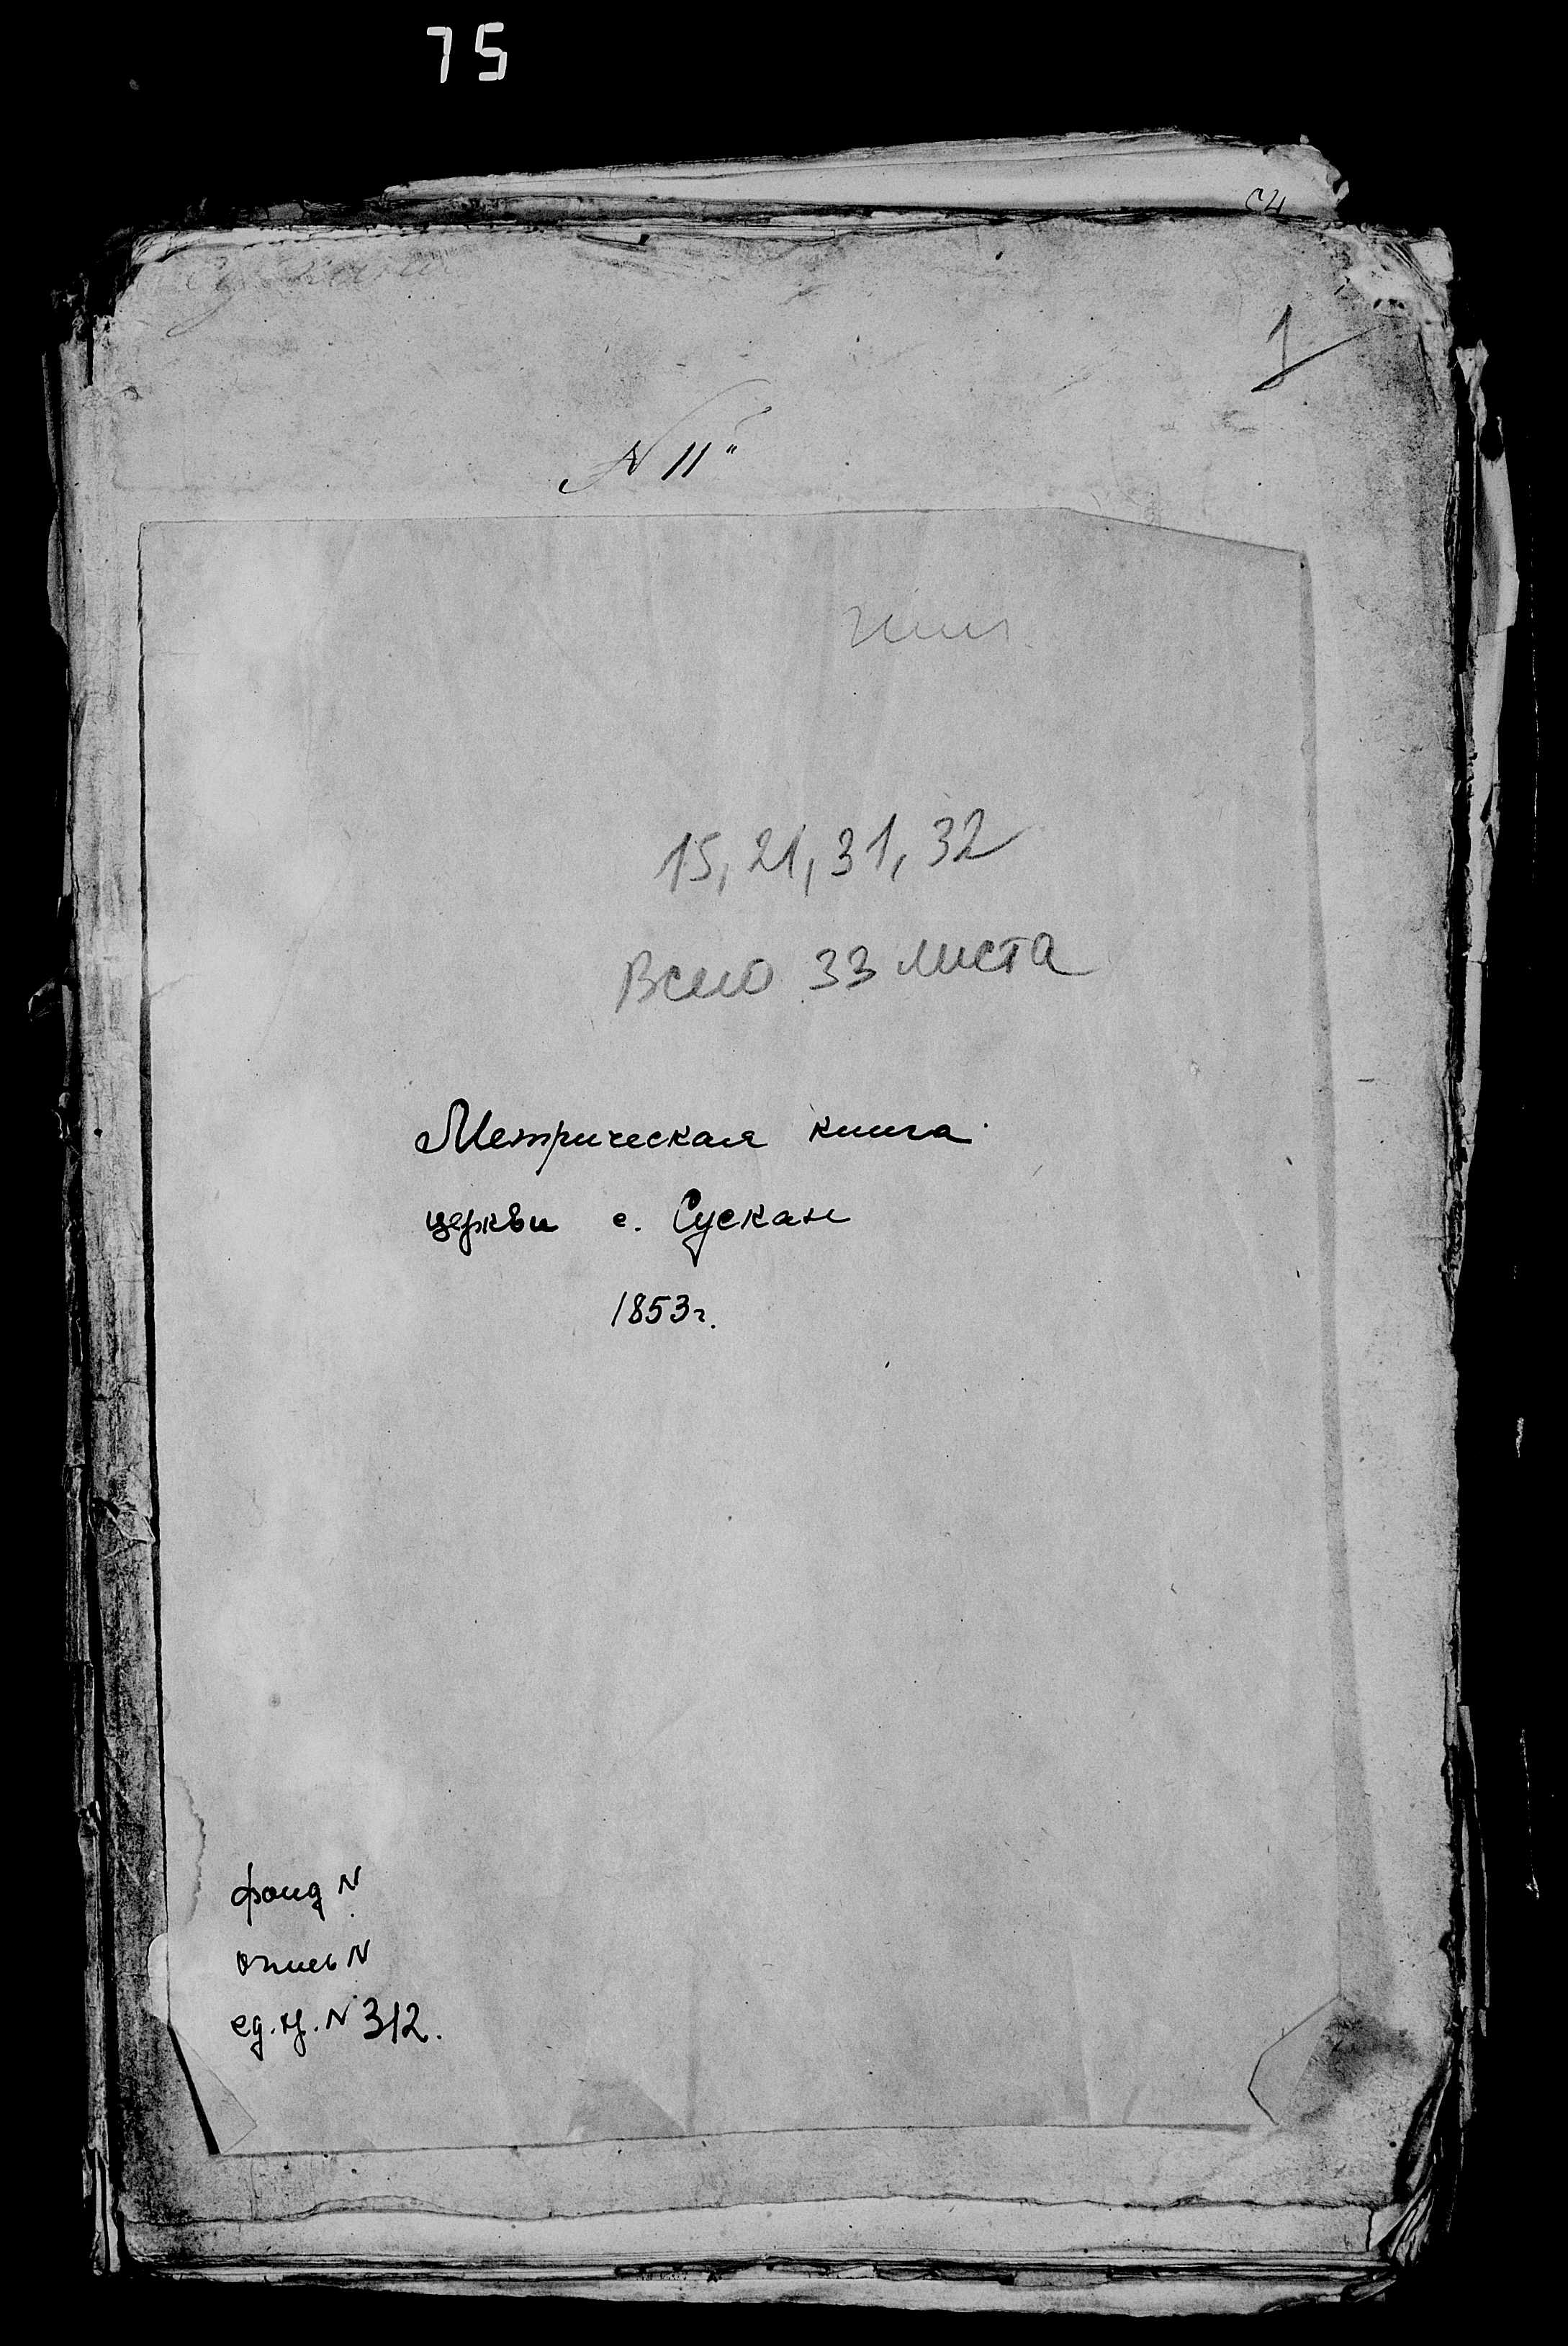 75
1
N 11"
15, 21, 31, 32
Всего 33 листа
Метрическая книга
церкви с. Сускан
1853г.
фонд N
опись N
ед. х. N 312.